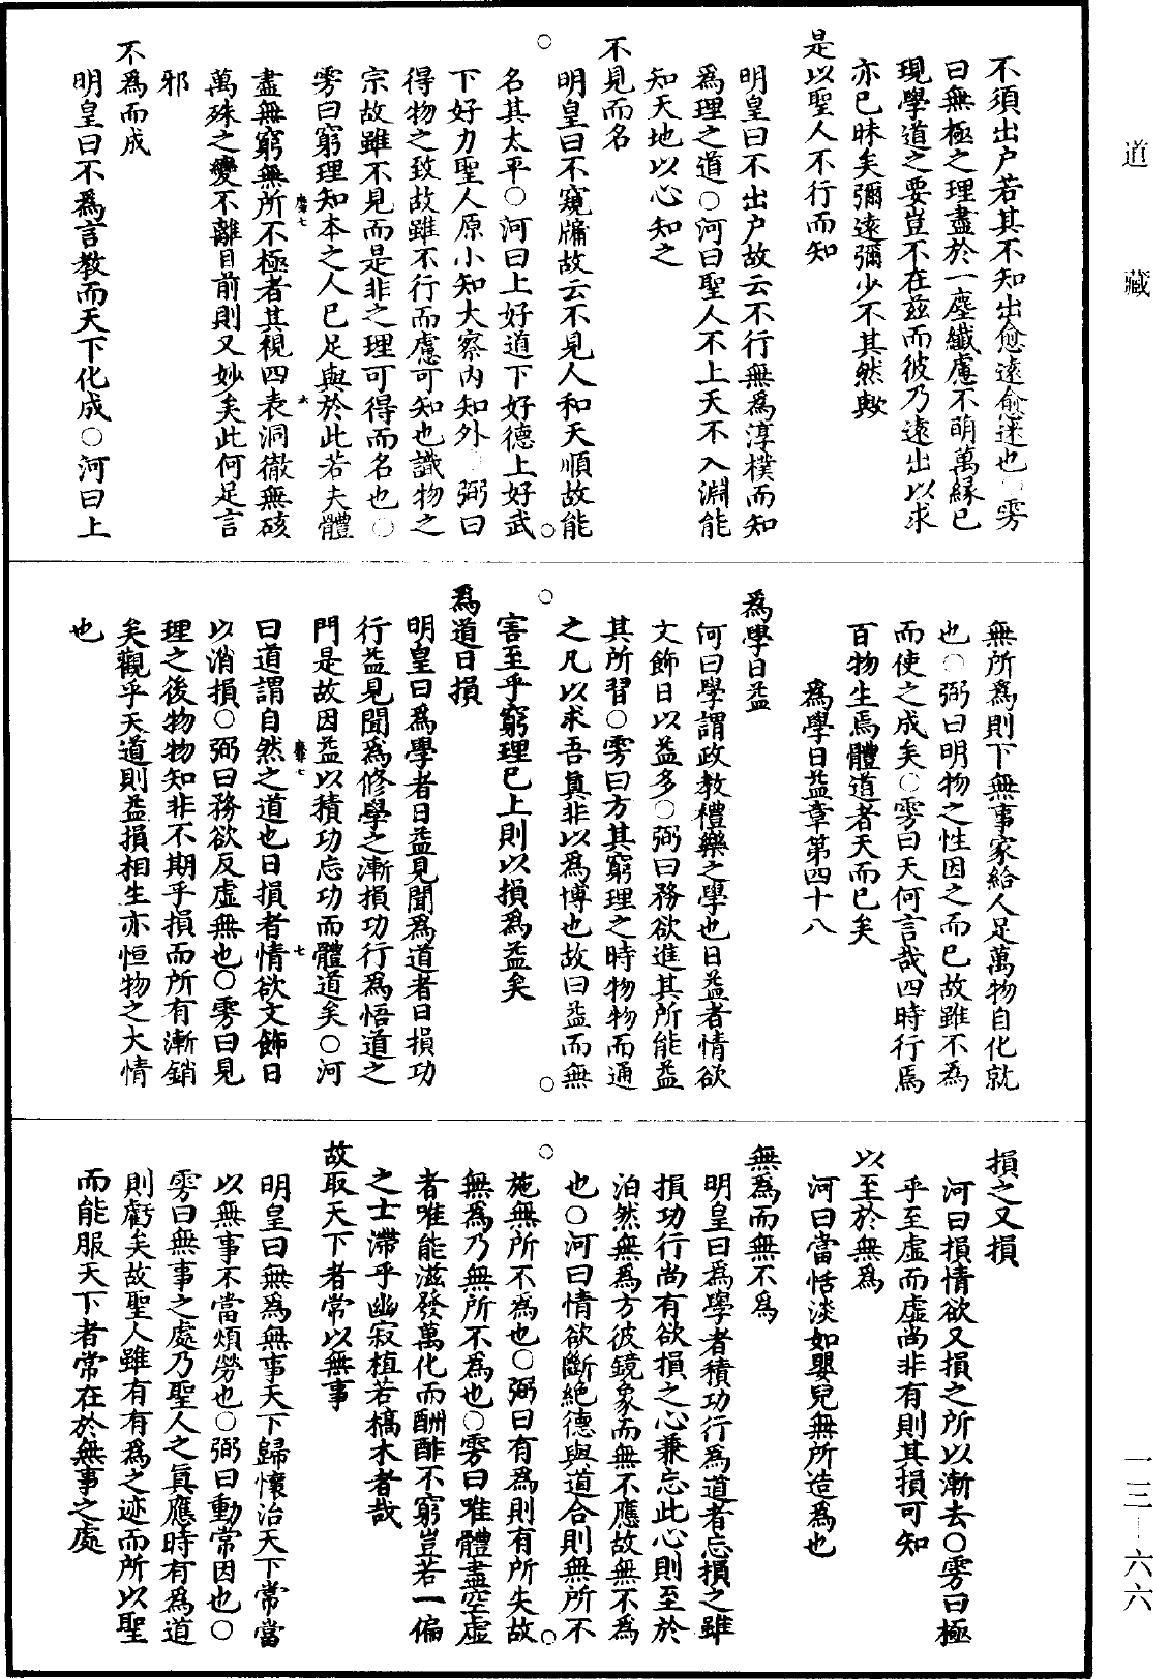 不須出户若其不知出愈遠愈迷也○雱
曰無極之理盡於一塵纖慮不萌萬緣已
現學道之要豈不在茲而彼乃遠出以求
亦已昧矣彌遠彌少不其然歟
是以聖人不行而知
明皇曰不出户故云不行無為淳樸而知
為理之道○河曰聖人不上天不入淵能
知天地以心知之
不見而名
明皇曰不窺牖故云不見人和天順故能
名其太平○河曰上好道下好德上好武
下好力聖人原小知大察内知外○弼曰
得物之致故雖不行而慮可知也識物之
宗故雖不見而是非之理可得而名也○
雱曰窮理知本之人已足與於此若夫體
盡無窮無所不極者其視四表洞徹無硋
萬殊之變不離目前則又妙矣此何足言
邪
不為而成
明皇曰不為言教而天下化成○河曰上
無所為則下無事家給人足萬物自化就
也○弼曰明物之性因之而已故雖不為
而使之成矣○雱曰天何言哉四時行焉
百物生焉體道者天而已矣
為學日益章第四十八
為學日益
何曰學謂政教禮樂之學也日益者情欲
文飾日以益多○弼曰務欲進其所能益
其所習○雱曰方其窮理之時物物而通
之凡以求吾真非以為博也故曰益而無
害至乎窮理已上則以損為益矣
為道日損
明皇曰為學者日益見聞為道者日損功
行益見聞為修學之漸損功行為悟道之
門是故因益以積功忘功而體道矣○河
曰道謂自然之道也日損者情欲文飾日
以消損○弼曰務欲反虛無也○雱曰見
理之後物物知非不期乎損而所有漸銷
矣觀乎天道則益損相生亦恒物之大情
也
損之又損
河曰損情欲又損之所以漸去○雱曰極
乎至虛而虛尚非有則其損可知
以至於無為
河曰當恬淡如嬰兒無所造為也
無為而無不為
明皇曰為學者積功行為道者忘損之雖
損功行尚有欲損之心兼忘此心則至於
泊然無為方彼鏡象而無不應故無不為
也○河曰情欲斷絶德與道合則無所不
施無所不為也○弼曰有為則有所失故
無為乃無所不為也○雱曰唯體盡空虛
者唯能滋發萬化而酬酢不窮豈若一偏
之士滯乎幽寂植若槁木者哉
故取天下者常以無事
明皇曰無為無事天下歸懷治天下常當
以無事不當煩勞也○弼曰動常因也○
雱曰無事之處乃聖人之真應時有為道
則虧矣故聖人雖有有為之迹而所以聖
而能服天下者常在於無事之處
道藏
一三—六六